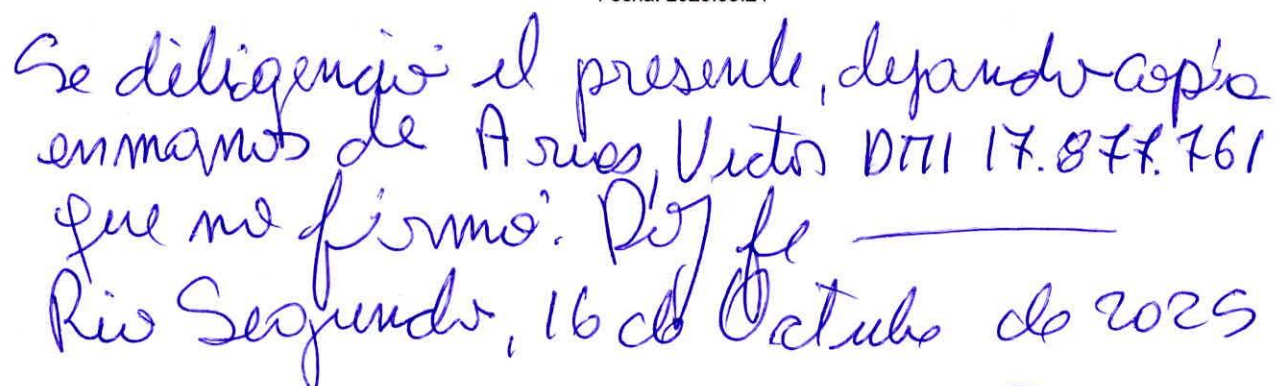 Se diligenció el presente, dejando copia
en manos de Arias, Victor DNI 17.877.761
que no firmó. Doy fe
Rio Segundo, 16 de Octubre de 2025